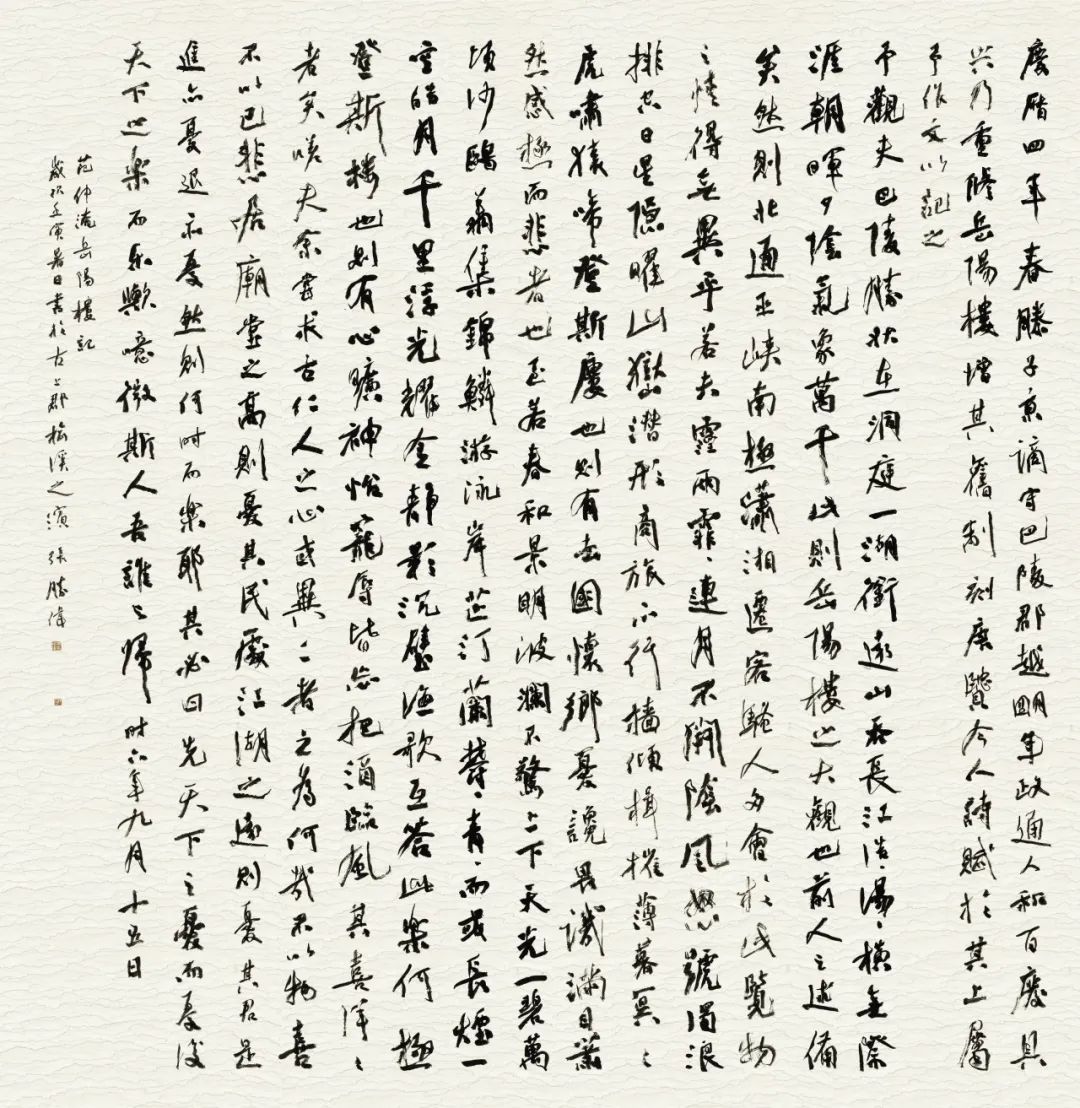 慶曆四年春滕子京謫守巴陵郡越明年政通人和百廢具
兴乃重修岳陽樓增其舊制刻唐賢今人詩賦於其上屬
予作文以記之
予觀夫巴陵勝狀在洞庭一湖銜遠山吞長江浩、湯、橫無際
涯朝暉夕陰氣象萬千此則岳陽樓之大觀也前人之述備
矣然則北通巫峽南極瀟湘遷客騷人多會於此覽物
之情得無異乎若夫霪雨霏、連月不開陰風怒號濁浪
排空日星隱曜山嶽潛形商旅不行檣傾楫摧薄暮冥〻
虎嘯猿啼登斯樓也則有去國懷鄉憂讒畏譏滿目蕭
然感極而悲者也至若春和景明波瀾不驚上下天光一碧萬
頃沙鷗翔集錦鱗游泳岸芷汀蘭鬱、青、而或長煙一
空皓月千里浮光耀金靜影沉璧漁歌互答此樂何極
登斯樓也則有心曠神怡寵辱皆忘把酒臨風其喜洋〻
者矣嗟夫余嘗求古仁人之心或異二者之為何哉不以物喜
不以己悲居廟堂之高則憂其民處江湖之遠則憂其君是
進亦憂退亦憂然則何時而樂耶其必曰先天下之憂而憂後
天下之樂而乐歟噫微斯人吾誰與歸 時六年九月十五日
范仲淹岳陽樓記
歲次壬寅暑日書於古上郡榆溪之濱 張勝偉